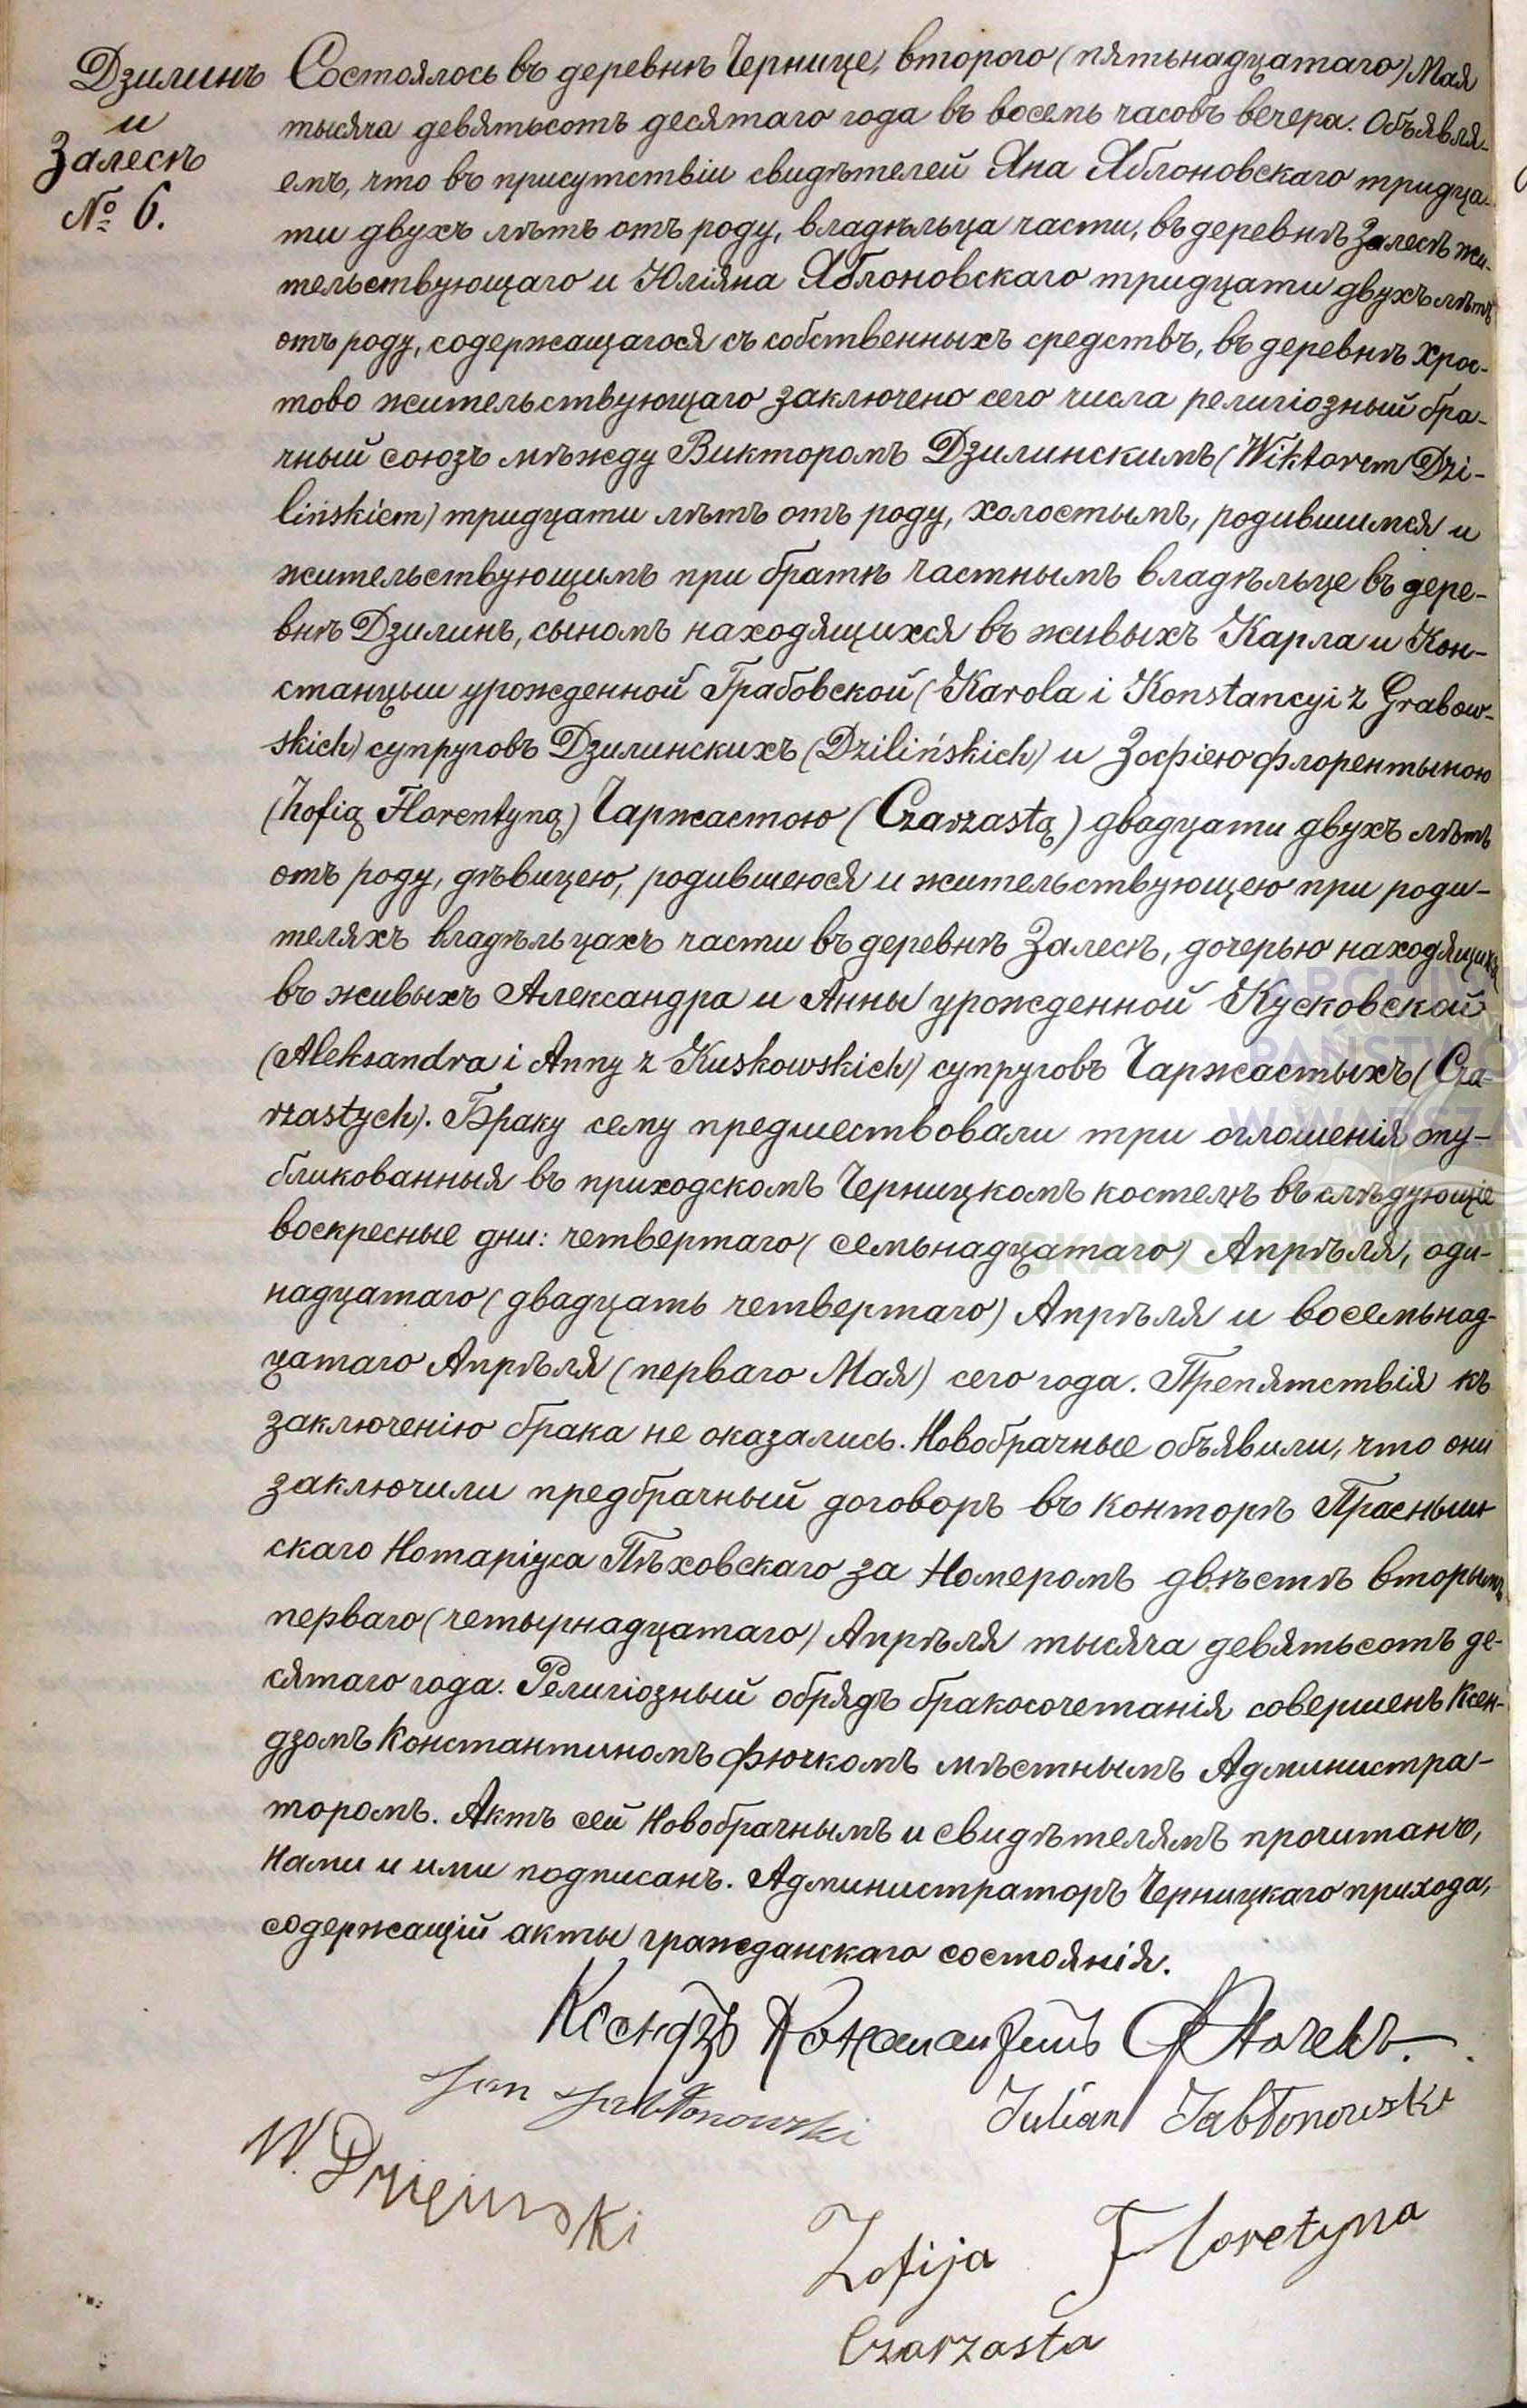 Дзилинъ
и
Залесѣ
№ 6.
Состоялось въ деревнѣ Чернице, второго (пятьнадцатаго) Мая
тысяча девятьсотъ десятаго года въ восемь часовъ вечера. Объявля-
емъ, что въ присутствіи свидѣтелей Яна Яблоновскаго тридца-
ти двухъ лѣтъ отъ роду, владѣльца части, въ деревнѣ Залесѣ жи-
тельствующаго и Юліяна Яблоновскаго тридцати двухъ лѣтъ
отъ роду, содержащагося съ собственныхъ средствъ, въ деревнѣ Хрос-
тово жительствующаго заключено сего числа религіозный бра-
чный союзъ мѣжду Викторомъ Дзилинскимъ (Wiktorem Dzi-
lińskiem) тридцати лѣтъ отъ роду, холостымъ, родившимся и
жительствующимъ при братѣ частнымъ владѣльце въ дере-
внѣ Дзилинъ, сыномъ находящихся въ живыхъ Карла и Кон-
станцыи урожденной Грабовской (Karola i Konstancyi z Grabow-
skich) супруговъ Дзилинскихъ (Dzilińskich) и Зосфіею Флорентыною
(Zofią Florentyną) Чаржастою (Czarzastą) двадцати двухъ лѣтъ
отъ роду, дѣвицею, родившеюся и жительствующею при роди-
теляхъ владѣльцахъ части въ деревнѣ Залесѣ, дочерью находящихся
въ живыхъ Александра и Анны урожденной Кусковской
(Aleksandra i Anny z Kuskowskich) супруговъ Чаржастыхъ (Cza-
rzastych). Браку сему предшествовали три оглошенія опу-
бликованныя въ приходскомъ Черницкомъ костелѣ въ слѣдующіе
воскресные дни: четвертаго (семьнадцатаго) Апрѣля, оди-
надцатаго (двадцать четвертаго) Апрѣля и восемьнад-
цатаго Апрѣля (перваго Мая) сего года. Препятствія къ
заключенію брака не оказались. Новобрачные объявили, что они
заключили предбрачный договоръ въ конторѣ Прасныш-
скаго Нотаріуса Пѣховскаго за Номеромъ двѣстѣ вторымъ
перваго (четырнадцатаго) Апрѣля тысяча девятьсотъ де-
сятаго года. Религіозный обрядъ бракосочетанія совершенъ Ксен-
дзомъ Константиномъ Фючкомъ мѣстнымъ Администра-
торомъ. Актъ сей Новобрачнымъ и свидѣтелямъ прочитанъ,
Нами и ими подписанъ. Администраторъ Черницкаго прихода,
содержащій акты гражданскаго состоянія.
Ксендзъ Константинъ Фючекъ.
Jan Jabłonowski Julian Jabłonowski
W. Dzilinski
Zofija Floretyna
Czarzasta